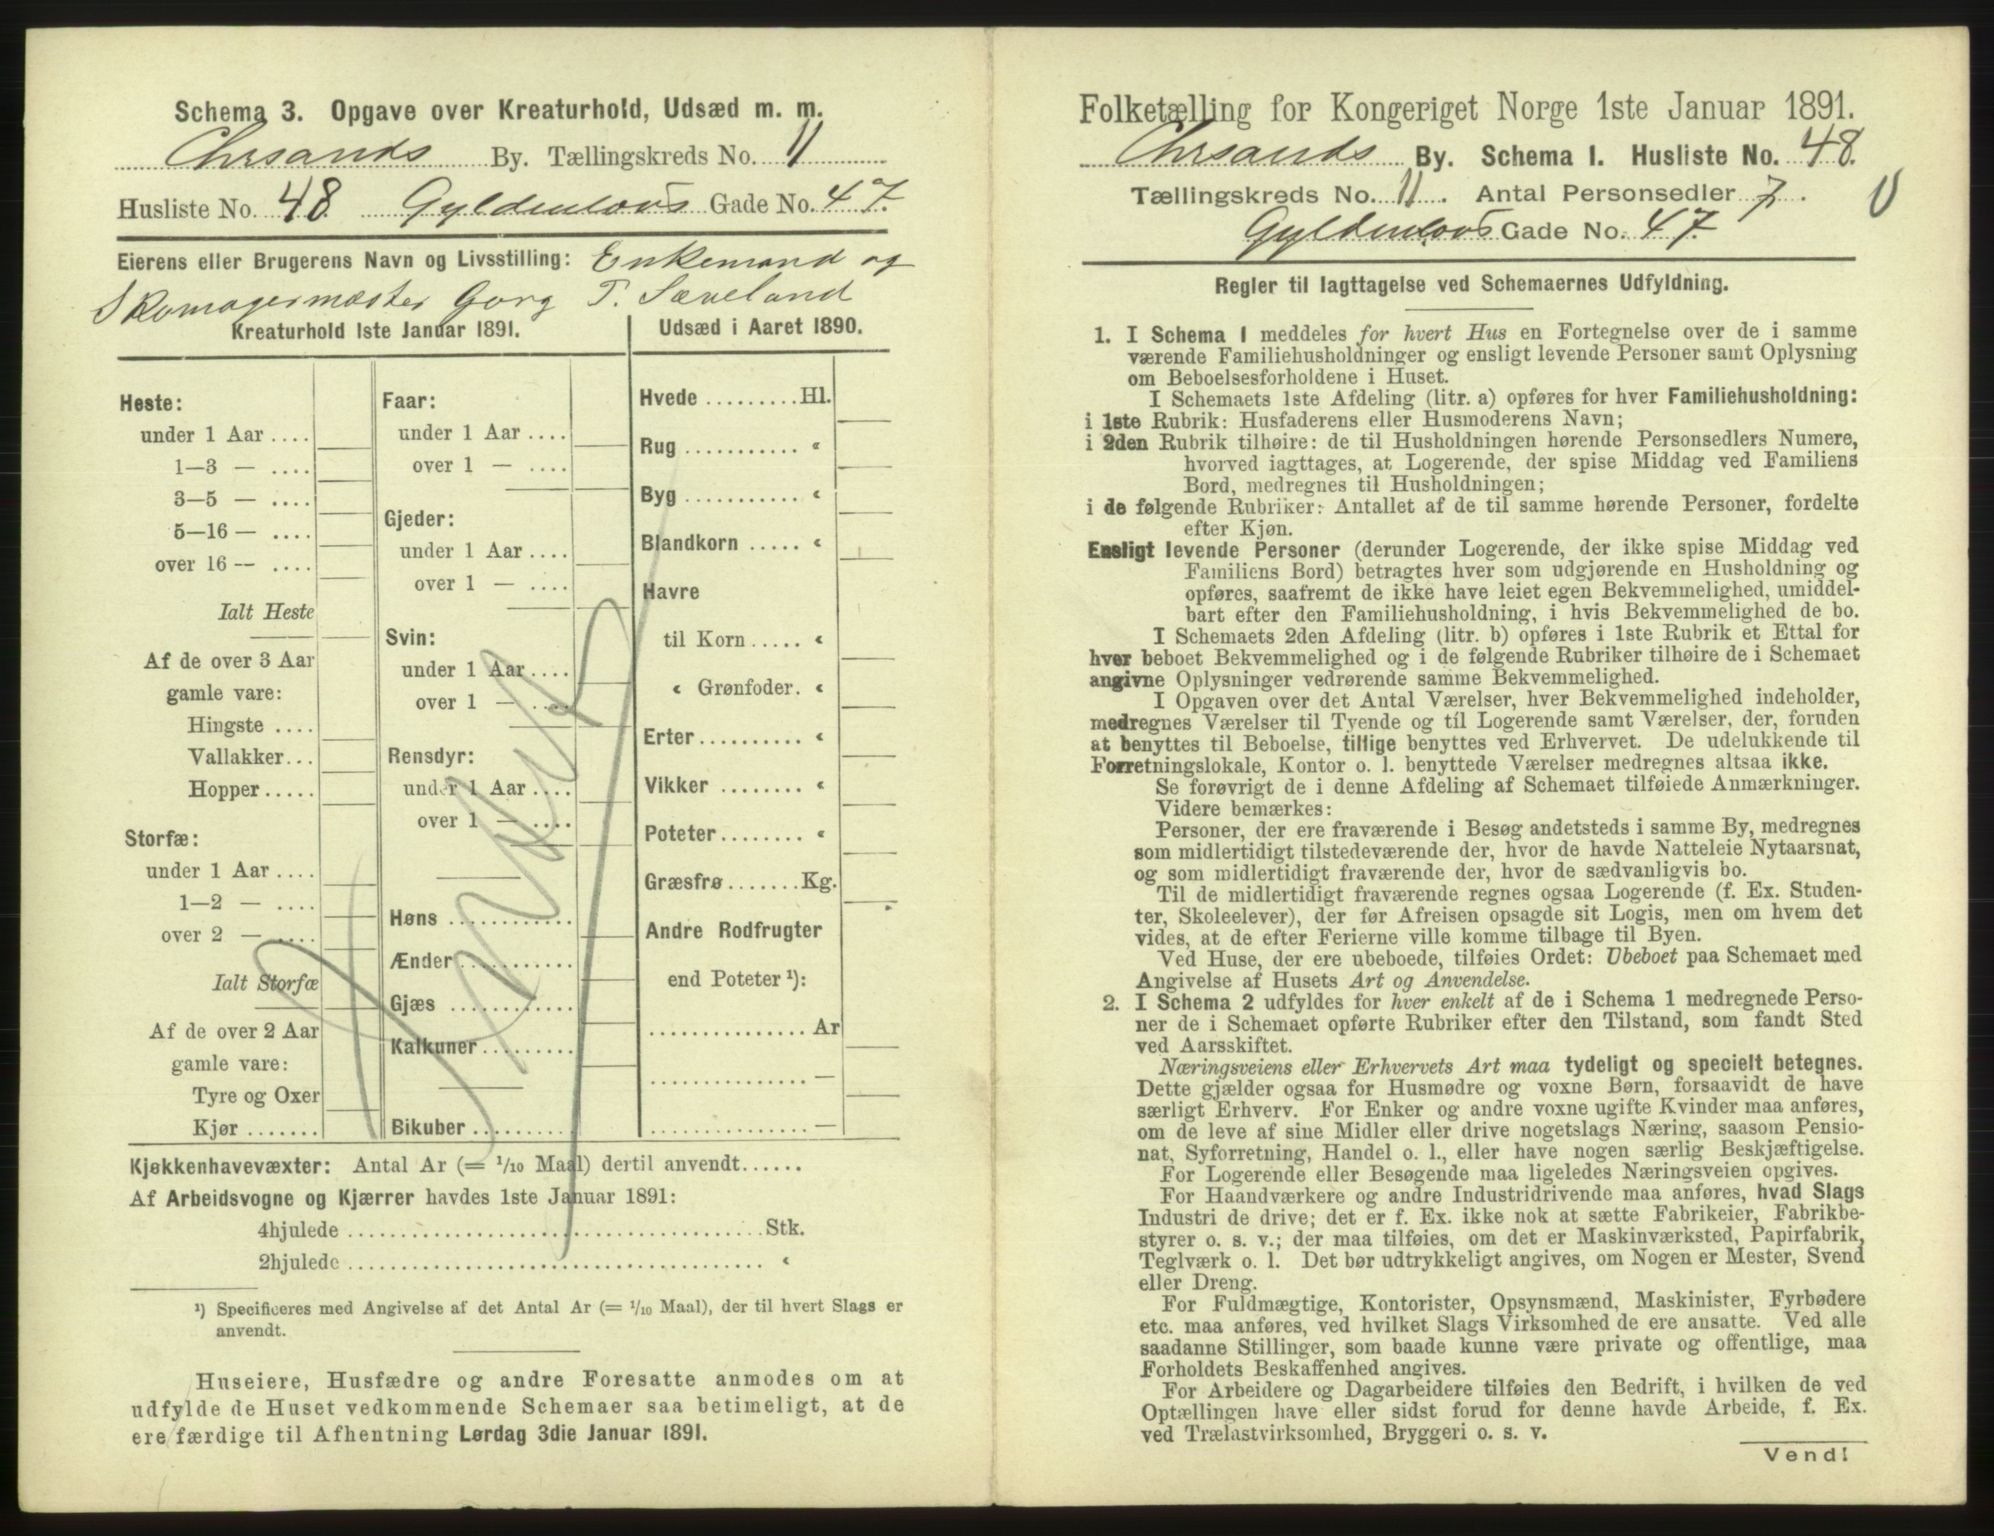 Schema 3. Opgave over Kreaturhold, Udsæd m. m.
Chrsands By. Tællingskreds No. 11
Husliste No. 48 Gyldenløvs Gade No. 47.
Eierens eller Brugerens Navn og Livsstilling: Enkemand og
Skomagermæster Gorg T. Sæveland
Kreaturhold 1ste Januar 1891.
Heste:
under 1 Aar ....
1—3 — ....
3—5 — ....
5—16 — ....
over 16 — ....
Ialt Heste
Af de over 3 Aar
gamle vare:
Hingste ....
Vallakker...
Hopper.....
Storfæ:
under 1 Aar ....
1—2 — ....
over 2 — ....
Ialt Storfæ
Af de over 2 Aar
gamle vare:
Tyre og Oxer
Kjør .......
Faar:
under 1 Aar ....
over 1 — ....
Gjeder:
under 1 Aar ....
over 1 — ....
Svin:
under 1 Aar ....
over 1 — ....
Rensdyr:
under 1 Aar ....
over 1 — ....
Høns ............
Ænder ...........
Gjæs ............
Kalkuner.........
Bikuber ..........
Udsæd i Aaret 1890.
Hvede .........Hl.
Rug ........... «
Byg ........... «
Blandkorn ..... «
Havre
til Korn ..... «
« Grønfoder. «
Erter.......... «
Vikker ........ «
Poteter........ «
Græsfrø.......Kg.
Andre Rodfrugter
end Poteter ¹):
............... Ar
............... —
............... —
Kjøkkenhavevæxter: Antal Ar (= 1/10 Maal) dertil anvendt......
Af Arbeidsvogne og Kjærrer havdes 1ste Januar 1891:
4hjulede ........................................ Stk.
2hjulede ........................................ «
¹) Specificeres med Angivelse af det Antal Ar (= 1/10 Maal), der til hvert Slags er
anvendt.
Huseiere, Husfædre og andre Foresatte anmodes om at
udfylde de Huset vedkommende Schemaer saa betimeligt, at de
ere færdige til Afhentning Lørdag 3die Januar 1891.
Folketælling for Kongeriget Norge 1ste Januar 1891.
Chrsands By. Schema 1. Husliste No. 48.
Tællingskreds No. 11. Antal Personsedler 7.
Gyldenløvs Gade No. 47.
Regler til Iagttagelse ved Schemaernes Udfyldning.
1. I Schema 1 meddeles for hvert Hus en Fortegnelse over de i samme
værende Familiehusholdninger og ensligt levende Personer samt Oplysning
om Beboelsesforholdene i Huset.
I Schemaets 1ste Afdeling (litr. a) opføres for hver Familiehusholdning:
i 1ste Rubrik: Husfaderens eller Husmoderens Navn;
i 2den Rubrik tilhøire: de til Husholdningen hørende Personsedlers Numere,
hvorved iagttages, at Logerende, der spise Middag ved Familiens
Bord, medregnes til Husholdningen;
i de følgende Rubriker: Antallet af de til samme hørende Personer, fordelte
efter Kjøn.
Ensligt levende Personer (derunder Logerende, der ikke spise Middag ved
Familiens Bord) betragtes hver som udgjørende en Husholdning og
opføres, saafremt de ikke have leiet egen Bekvemmelighed, umiddel-
bart efter den Familiehusholdning, i hvis Bekvemmelighed de bo.
I Schemaets 2den Afdeling (litr. b) opføres i 1ste Rubrik et Ettal for
hver beboet Bekvemmelighed og i de følgende Rubriker tilhøire de i Schemaet
angivne Oplysninger vedrørende samme Bekvemmelighed.
I Opgaven over det Antal Værelser, hver Bekvemmelighed indeholder,
medregnes Værelser til Tyende og til Logerende samt Værelser, der, foruden
at benyttes til Beboelse, tillige benyttes ved Erhvervet. De udelukkende til
Forretningslokale, Kontor o. l. benyttede Værelser medregnes altsaa ikke.
Se forøvrigt de i denne Afdeling af Schemaet tilføiede Anmærkninger.
Videre bemærkes:
Personer, der ere fraværende i Besøg andetsteds i samme By, medregnes
som midlertidigt tilstedeværende der, hvor de havde Natteleie Nytaarsnat,
og som midlertidigt fraværende der, hvor de sædvanligvis bo.
Til de midlertidigt fraværende regnes ogsaa Logerende (f. Ex. Studen-
ter, Skoleelever), der før Afreisen opsagde sit Logis, men om hvem det
vides, at de efter Ferierne ville komme tilbage til Byen.
Ved Huse, der ere ubeboede, tilføies Ordet: Ubeboet paa Schemaet med
Angivelse af Husets Art og Anvendelse.
2. I Schema 2 udfyldes for hver enkelt af de i Schema 1 medregnede Perso-
ner de i Schemaet opførte Rubriker efter den Tilstand, som fandt Sted
ved Aarsskiftet.
Næringsveiens eller Erhvervets Art maa tydeligt og specielt betegnes.
Dette gjælder ogsaa for Husmødre og voxne Børn, forsaavidt de have
særligt Erhverv. For Enker og andre voxne ugifte Kvinder maa anføres,
om de leve af sine Midler eller drive nogetslags Næring, saasom Pensio-
nat, Syforretning, Handel o. l., eller have nogen særlig Beskjæftigelse.
For Logerende eller Besøgende maa ligeledes Næringsveien opgives.
For Haandværkere og andre Industridrivende maa anføres, hvad Slags
Industri de drive; det er f. Ex. ikke nok at sætte Fabrikeier, Fabrikbe-
styrer o. s. v.; der maa tilføies, om det er Maskinværksted, Papirfabrik,
Teglværk o. l. Det bør udtrykkeligt angives, om Nogen er Mester, Svend
eller Dreng.
For Fuldmægtige, Kontorister, Opsynsmænd, Maskinister, Fyrbødere
etc. maa anføres, ved hvilket Slags Virksomhed de ere ansatte. Ved alle
saadanne Stillinger, som baade kunne være private og offentlige, maa
Forholdets Beskaffenhed angives.
For Arbeidere og Dagarbeidere tilføies den Bedrift, i hvilken de ved
Optællingen have eller sidst forud for denne havde Arbeide, f. Ex.
ved Trælastvirksomhed, Bryggeri o. s. v.
Vend!